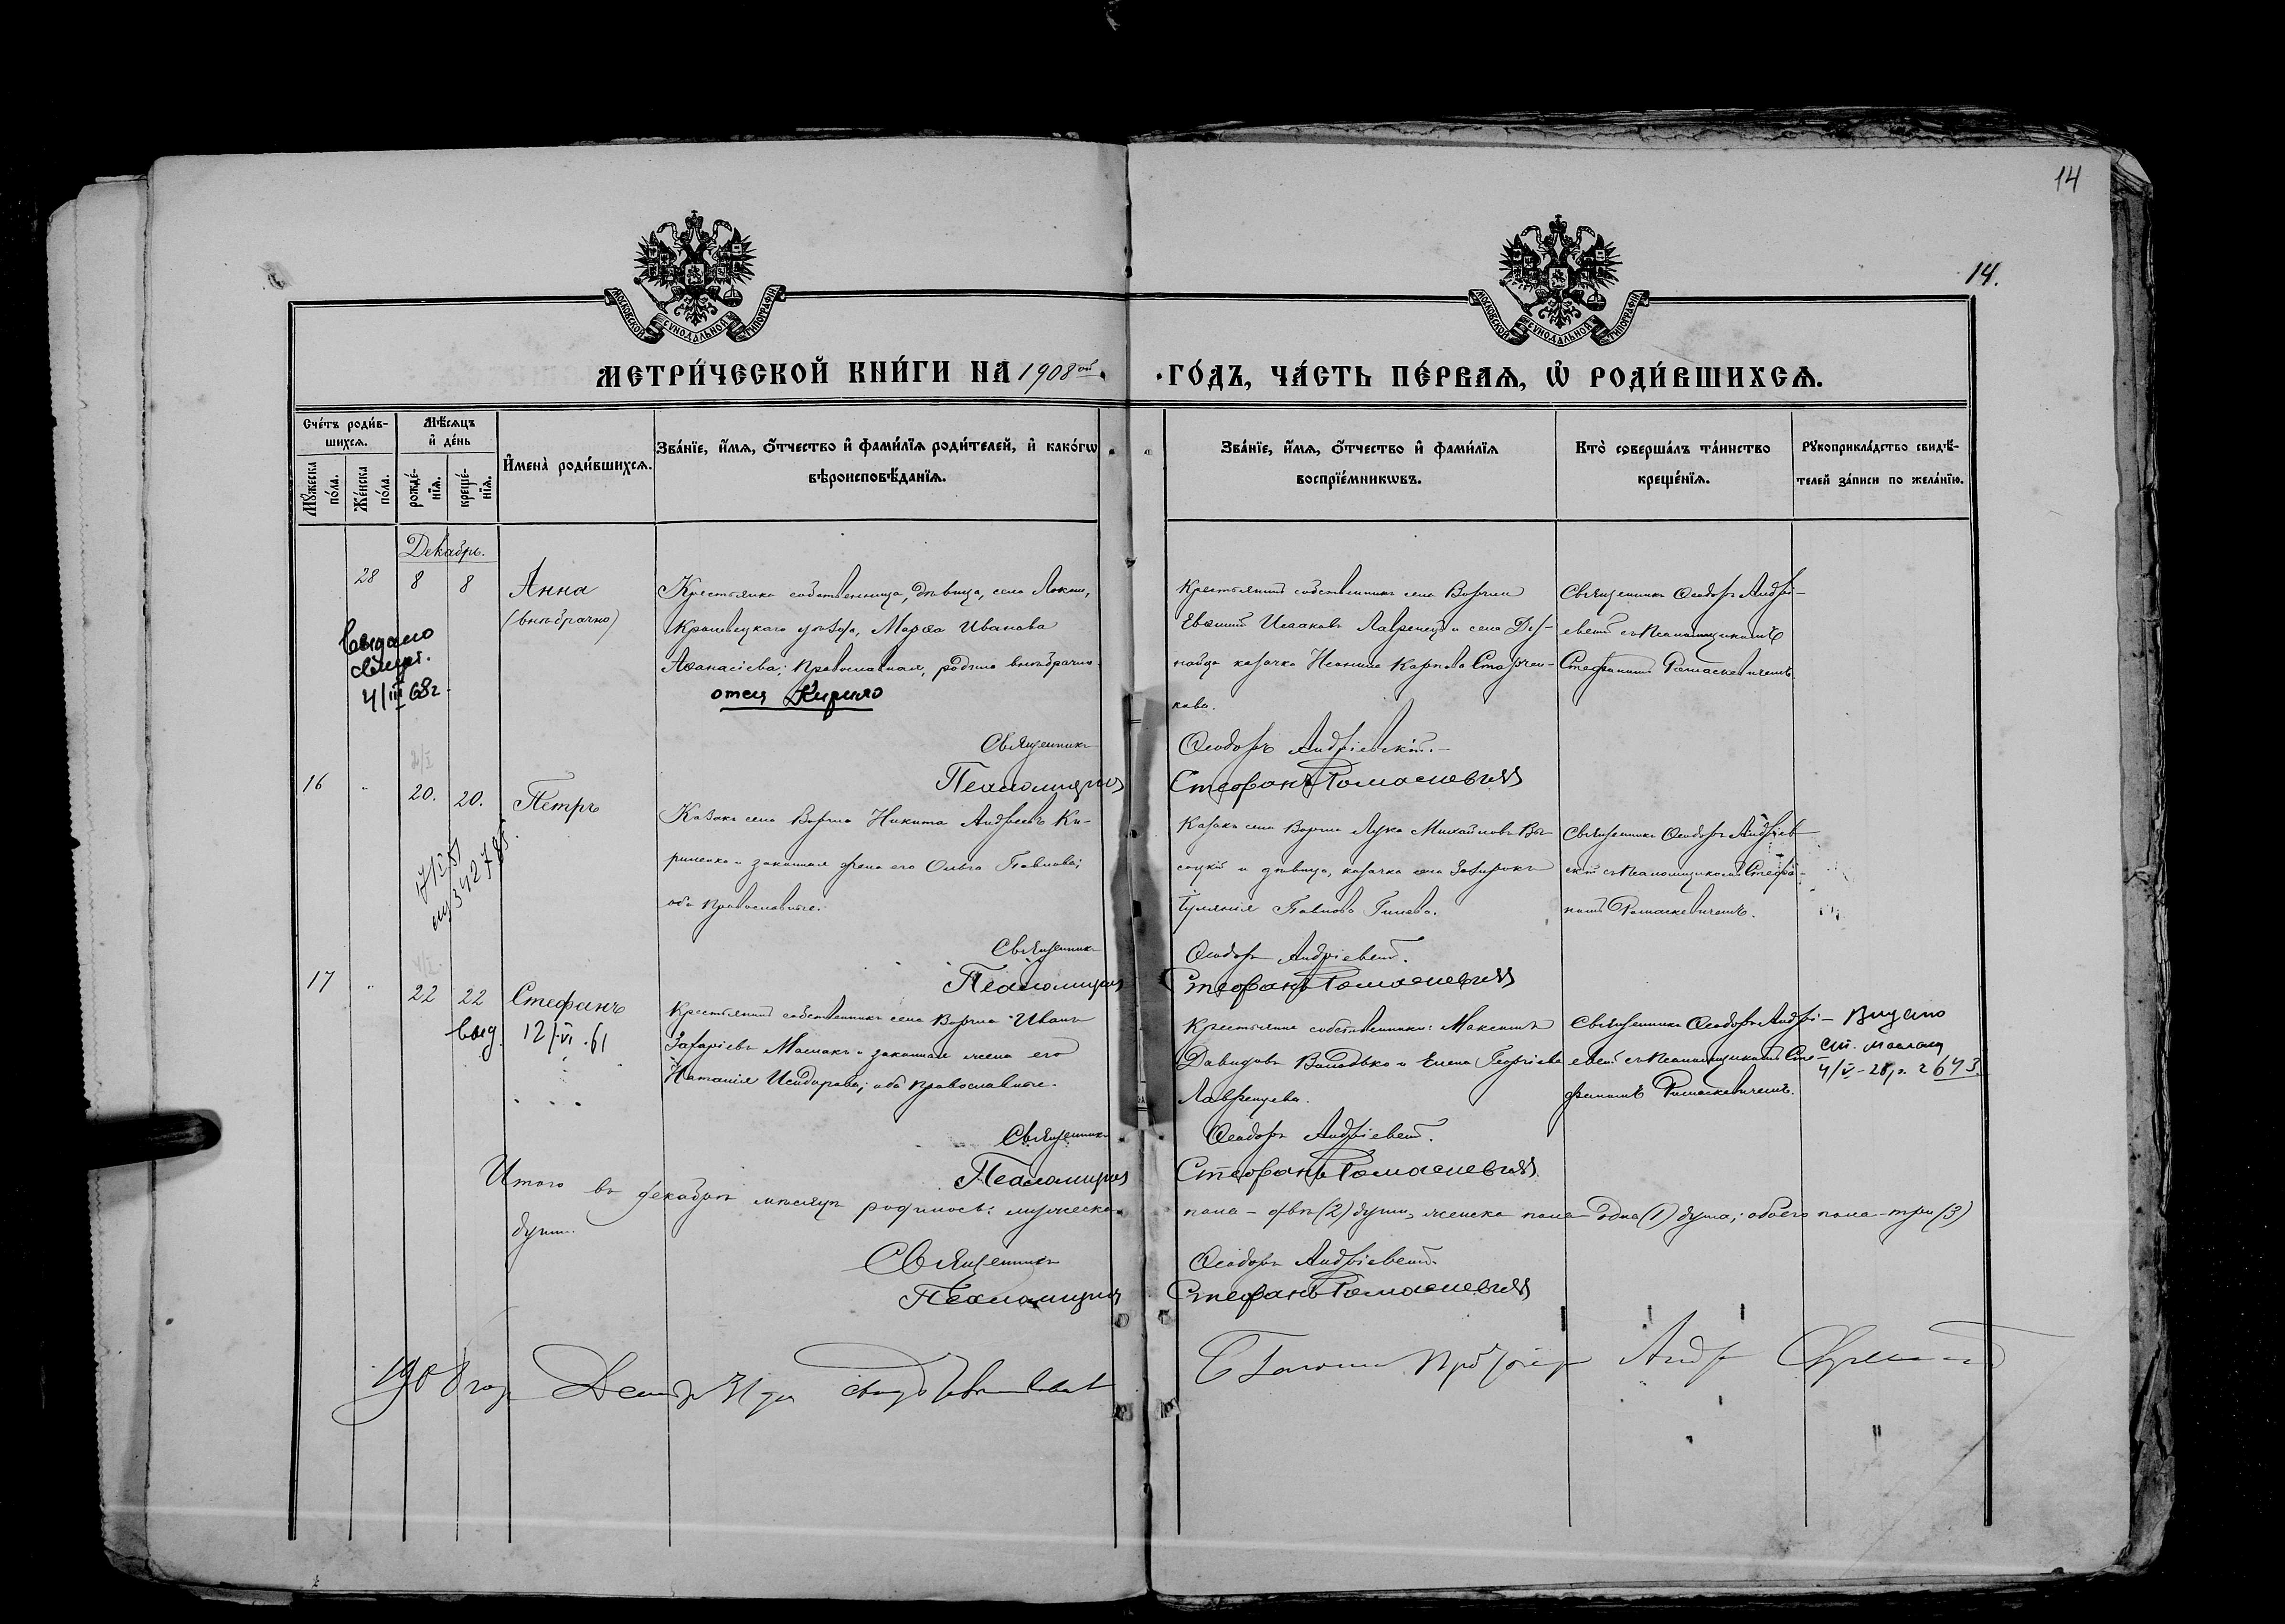 14
14.
МОСКОВСКОЙ СѴНОДАЛЬНОЙ ТИПОГРАФІИ
МОСКОВСКОЙ СѴНОДАЛЬНОЙ ТИПОГРАФІИ
МЕТРИ́ЧЕСКОЙ КНИ́ГИ НА 1908 ой
ГО́ДЪ, ЧА́СТЬ ПЕ́РВАѦ, Ѡ҆ РОДИ́ВШИХСѦ.
Сче́тъ роди́в-
шихсѧ.
Мѣ́сѧцъ
и҆ де́нь
Мꙋ́жеска по́ла.
Же́нска по́ла.
рожде́-
нїѧ.
креще́-
нїѧ.
И҆мена̀ роди́вшихсѧ.
Зва́нїе, и҆́мѧ, ѻ҆́тчество и҆ фами́лїѧ роди́телей, и҆ како́гѡ
вѣроисповѣ́данїѧ.
Зва́нїе, и҆́мѧ, ѻ҆́тчество и҆ фами́лїѧ
воспрїе́мникѡвъ.
Кто̀ соверша́лъ та́инство
креще́нїѧ.
Рꙋкоприкла́дство свидѣ́-
телей за́писи по жела́нїю.
Декабрь.
28 8 8 Анна
(внѣбрачно)
Крестьянка собственница, дѣвица, села Локни,
Кролевецкаго уѣзда, Марѳа Иванова
Аѳанасіева; православная, родила внѣбрачно.
отец Кирило
Крестьянинъ собственникъ села Воргла
Евѳимій Исааковъ Лавренецъ и села
казачка Карпова Старчен-
кова.
Священникъ Ѳеодоръ Андрі-
евскій съ псаломщикомъ
Стефаномъ Ромаскевичемъ
Выдано
свидет.
4/III 68г.
Священникъ Ѳеодоръ Андріевскій.
Псаломщикъ Стефанъ Ромаскевичъ
2/I
16 " 20. 20. Петръ
Казакъ села Воргла Никита Андреевъ Ки-
риленко и законная жена его Ольга Павлова;
оба православные.
Казакъ села Воргла Лука Михайловъ Вы-
соцкій и дѣвица, казачка села
Іуліянія Павлова
Священникъ Ѳеодоръ Андріев-
скій съ псаломщикомъ Стефа-
номъ Ромаскевичемъ.
Священникъ Ѳеодоръ Андріевскій.
Псаломщикъ Стефанъ Ромаскевичъ
4/I
17 " 22 22 Стефанъ
выд. 12/VI.61
Крестьянинъ собственникъ села Воргла Иванъ
Захаріевъ и законная жена его
Наталія Исидорова; оба православные.
Крестьяне собственники: Максимъ
Давидовъ Володько и Елена Георгіева
Лавренцева.
Священникъ Ѳеодоръ Андрі-
евскій съ псаломщикомъ Сте-
фаномъ Ромаскевичемъ.
Видано
4/V-28р. 2643
Священникъ Ѳеодоръ Андріевскій.
Псаломщикъ Стефанъ Ромаскевичъ
Итого въ декабрѣ мѣсяцѣ родилось: мужеска пола - двѣ (2) души, женска пола одна (1) душа; обоего пола - три (3)
души.
Священникъ Ѳеодоръ Андріевскій
Псаломщикъ Стефанъ Ромаскевичъ
1908 года Декабря 31 дня